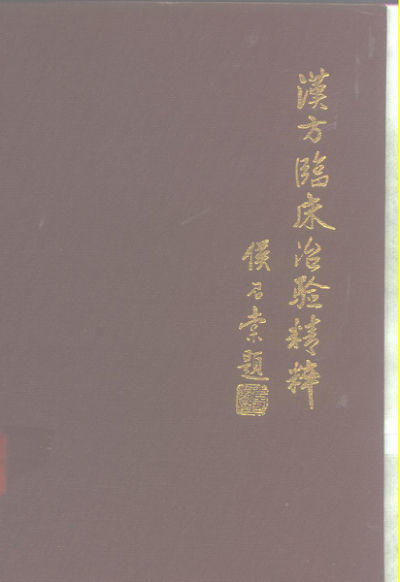 漢方臨床治验精粹
侯召棠题